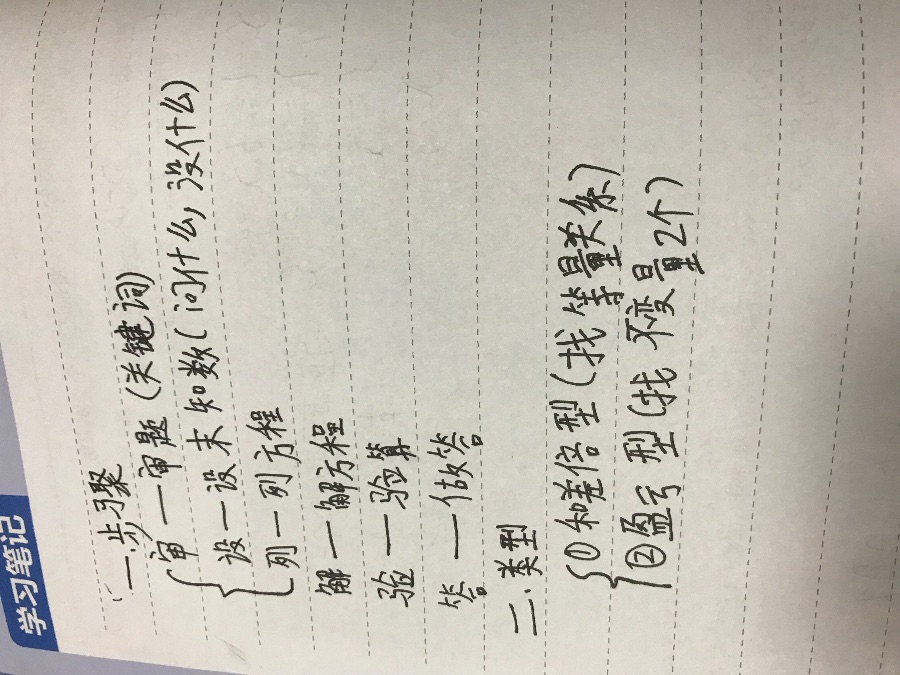 学习笔记
一.步骤
审一审题(关键词)
设一设未知数(问什么,设什么)
列一列方程
解一解方程
验一验算
答一做答
二.类型
①和差倍型(找等量关系)
②盈亏型(找不变量2个)